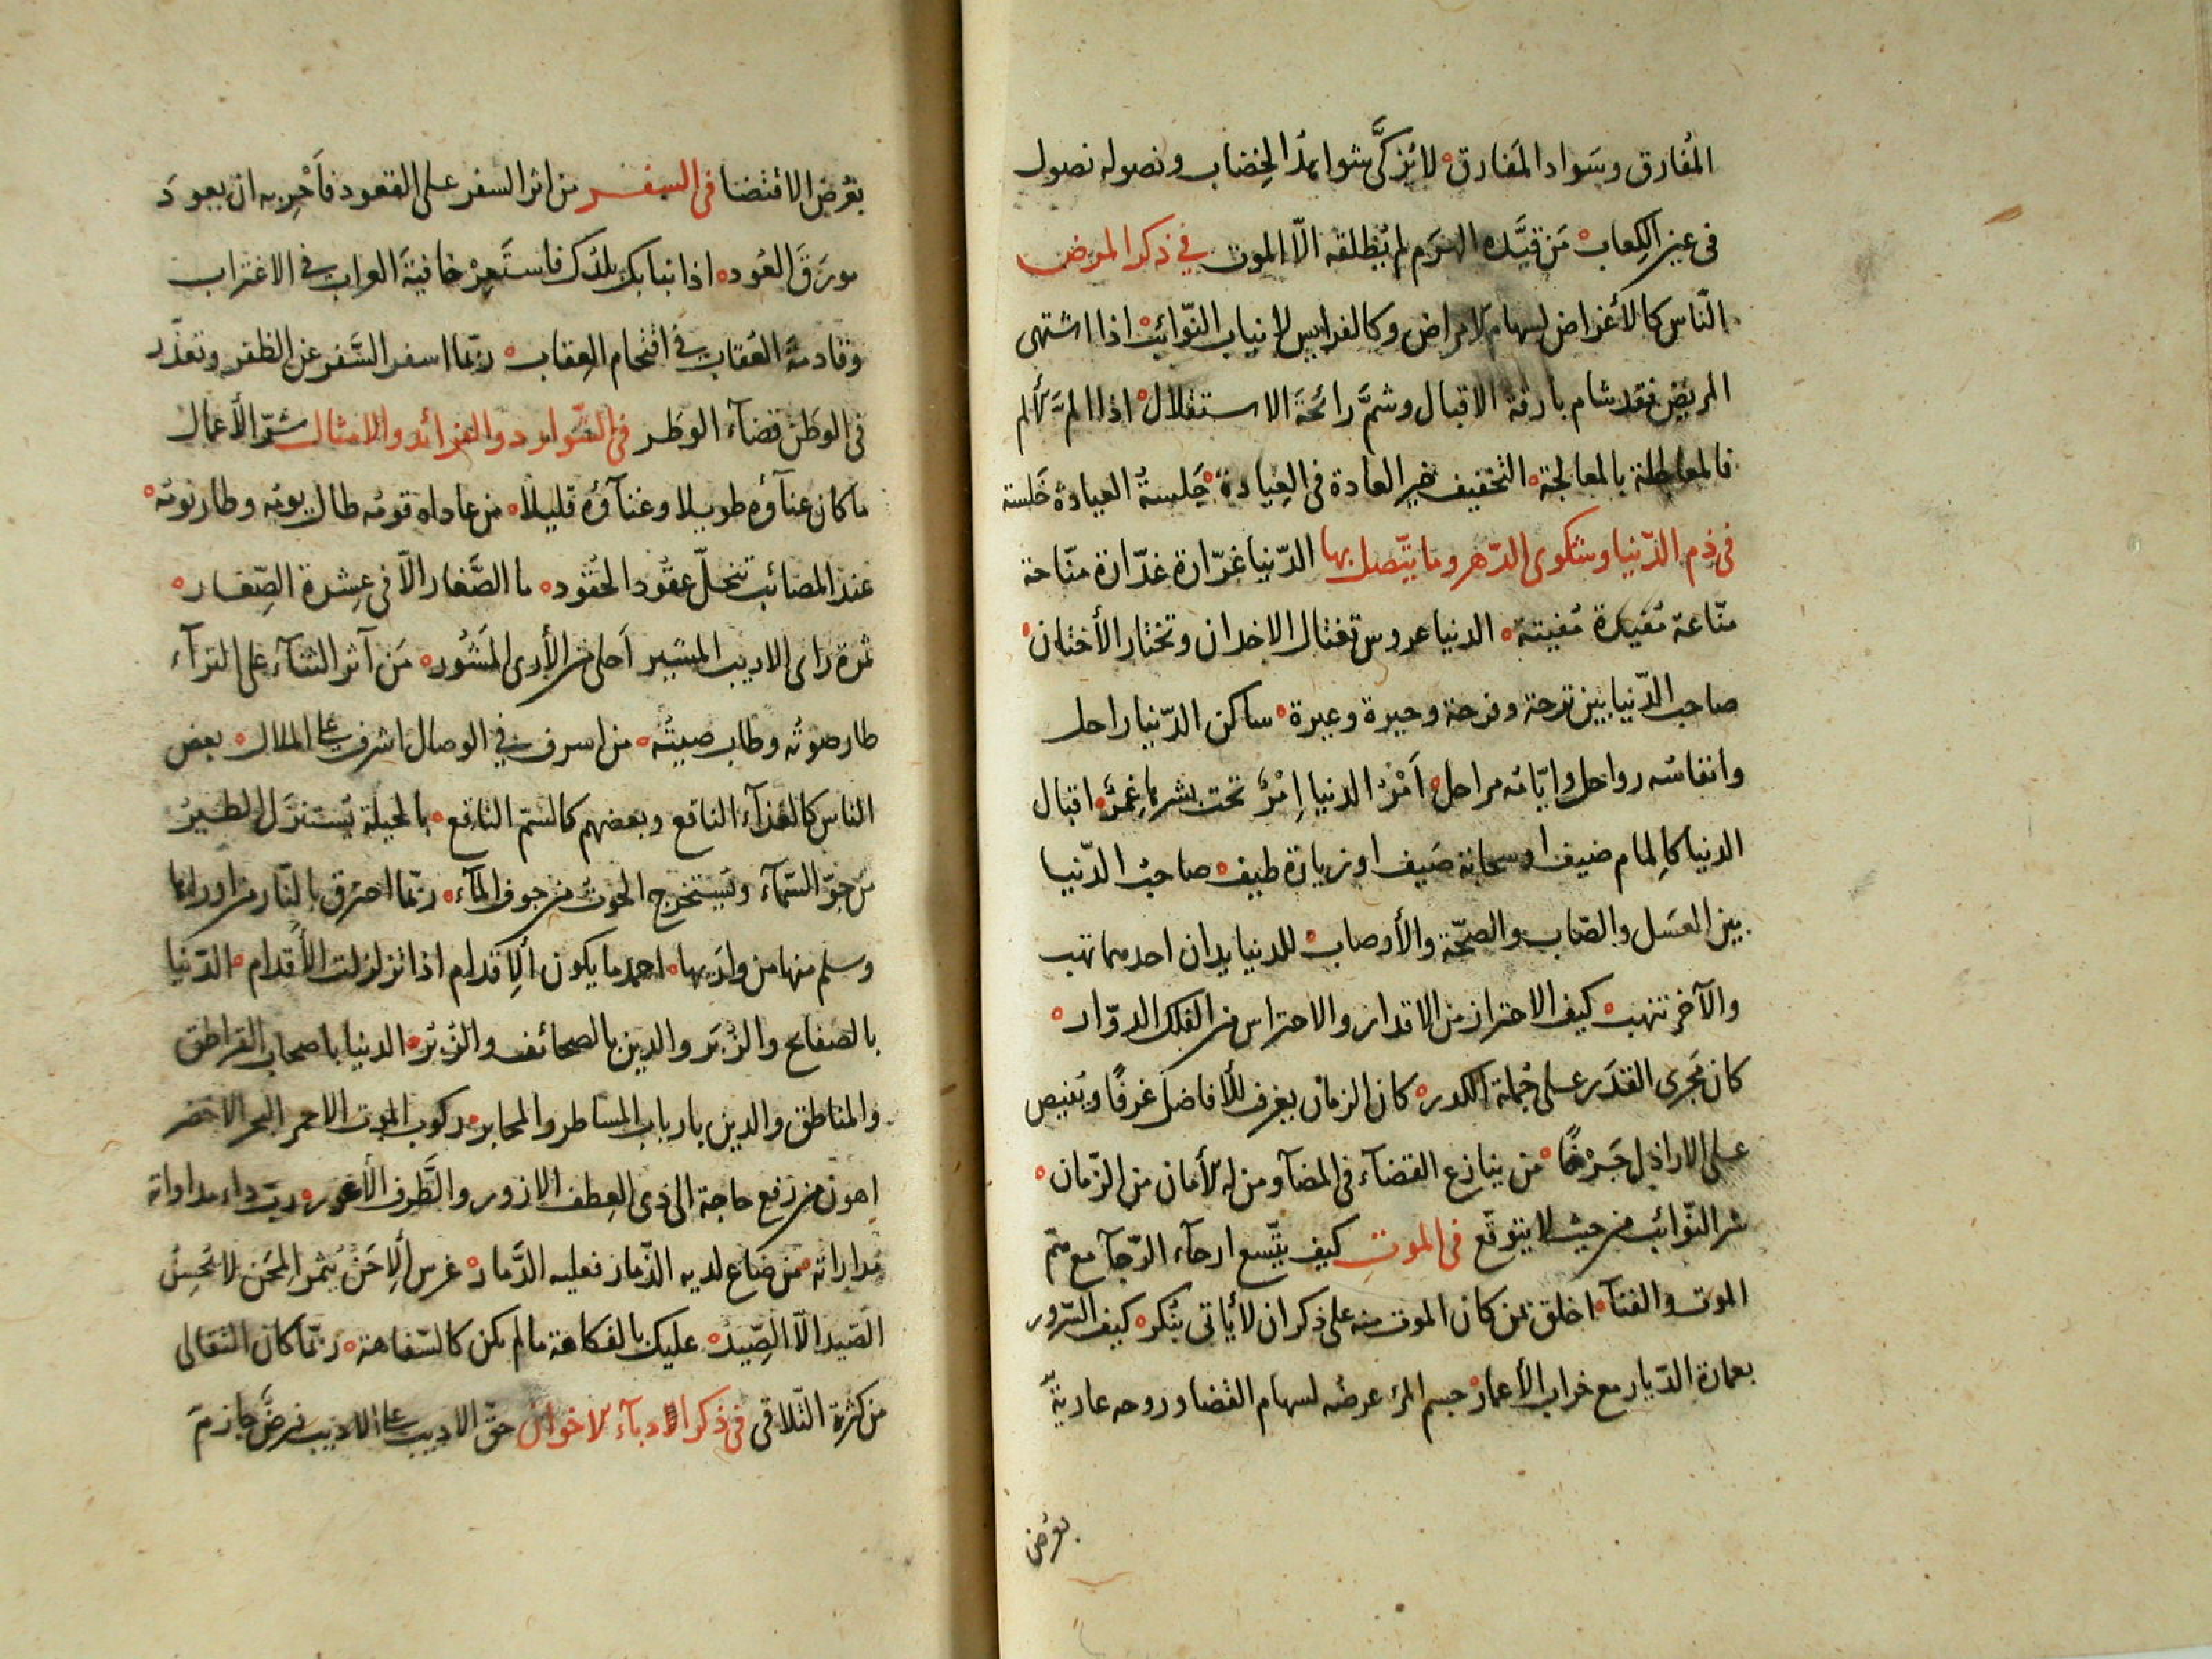 المُفارق وسَواد المَفارق لا تزكَّى شواهد الخِضاب ونصوله نصول
فى عين الكِعاب مَن قيَّده الهرَم لم يُطلقه الّا الموت في ذكر المرض
النّاس كالأغراض لسهام الامراض وكالفرايس لانياب النّوائب اذا اشتهى
المريض فقد شام بارقة الاقبال وشمَّ رائحَة الاستقلال اذا المَّ الألم
فالمعاجلة بالمعالجة التخفيف خير العادة فى العِيادة جَلسةُ العيادة خَلسة
فى ذم الدّنيا وشكوى الدّهر وما يتّصل بها الدّنيا غرّارة غدّارة منّاحة
منّاعة مُفيدة مُفيتة الدنيا عروس تغتال الاخدان وتختار الأختان
صاحب الدّنيا بين ترحة وفرحة وحيرة وعبرة ساكن الدّنيا راحل
وانفاسُه رواحل وايّامُه مراحل اَمْرُ الدنيا اِمْرٌ تحت بشرها غمرٌ اقبال
الدنيا كاِلمام ضيف او سحابة صَيف او زيارة طيف صاحبُ الدّنيا
بين العسَل والصّاب والصحّة والأوصاب للدنيا يدان احديهما تهب
والآخر تنهب كيف الاحتراز من الاقدار والاحتراس من الفلك الدوّار
كان مَجرى القدَر على جُملة الكدر كان الزمان يغرف للأفاضل غرفًا ويُفيض
على الاراذل جَرْفًا من ينازع القضآء فى المضآ ومن له الأمان من الزّمان
شر النّوائب من حيث لا يتوقّع فى الموت كيف يتّسع ارجآء الرّجآ مع
الموت والفنآ اخلق بمن كان الموت منه على ذكر ان لا يأتى بنُكر كيف السّرور
بعمارة الدّيار مع خراب الأعمار جسم المرء عرضُه لسهام القضا وروحه عاريةٌ
بعُرض
بعُرض الاقتضا فى السفر من اثر السفر على القعود فاَحْرِ به ان يعودَ
مورَقَ العُود اذا نبا بك بلدُك فاستَعِرْ خافيةَ الغراب في الاغتراب
وقادمةَ العُقاب في اقتحام العِقاب ربّما اسفر السَّفر عن الظفر وتعذّر
فى الوطَن قضآء الوطَر فى الشّوارد والفرائد والامثال شرّ الأعمال
ما كان عنآؤه طويلا وغنآؤه قليلا من عاداه قومُه طال يومُه وطار نومُه
عند المصائب تنحلّ عقُود الحُقود ما الصَّغار الّا فى عِشرة الصِّغار
ثمرة راى الاديب المشير اَحلى من الأرى المَشُور مَن آثر الثنآء على الثرآء
طار صوتُه وطاب صيتُه من اسرف في الوصال اشرف على الملال بعض
الناس كالغذآء النافع وبعضهم كالسّم الناقع بالحيلة يُستنزَل الطيرُ
من جوّ السّمآء ويُستخرج الحوتُ من جوف المآء ربّما احترق بالنّار من اوراها
وسلم منها من وارَيها احمد ما يكون الاِقدام اذا تزلزلت الأقدام الدّنيا
بالصفايح والزُبَر والدين بالصحائف والزُبُر الدنيا باصحاب القراطق
والمناطق والدين بارباب المساطر والمحابر ركوب الموت الاحمر البحر الاخضر
اهون من رفع حاجة الى ذى العِطف الازور والطَّرف الأعور ربّ داء مداواته
مداراته من ضاع لديه الذّمار فعليه الدَّمار غرس الاِحَن يُثمر المِحَن لا يُحسِنُ
الصَيد الّا الصِّيد عليك بالفكاهة ما لم تكن كالسّفاهة ربّما كان التقالى
من كثرة التّلاقى فى ذكر الادبآء الاخوان حقّ الاديب على الاديب فرضٌ جازمٌ